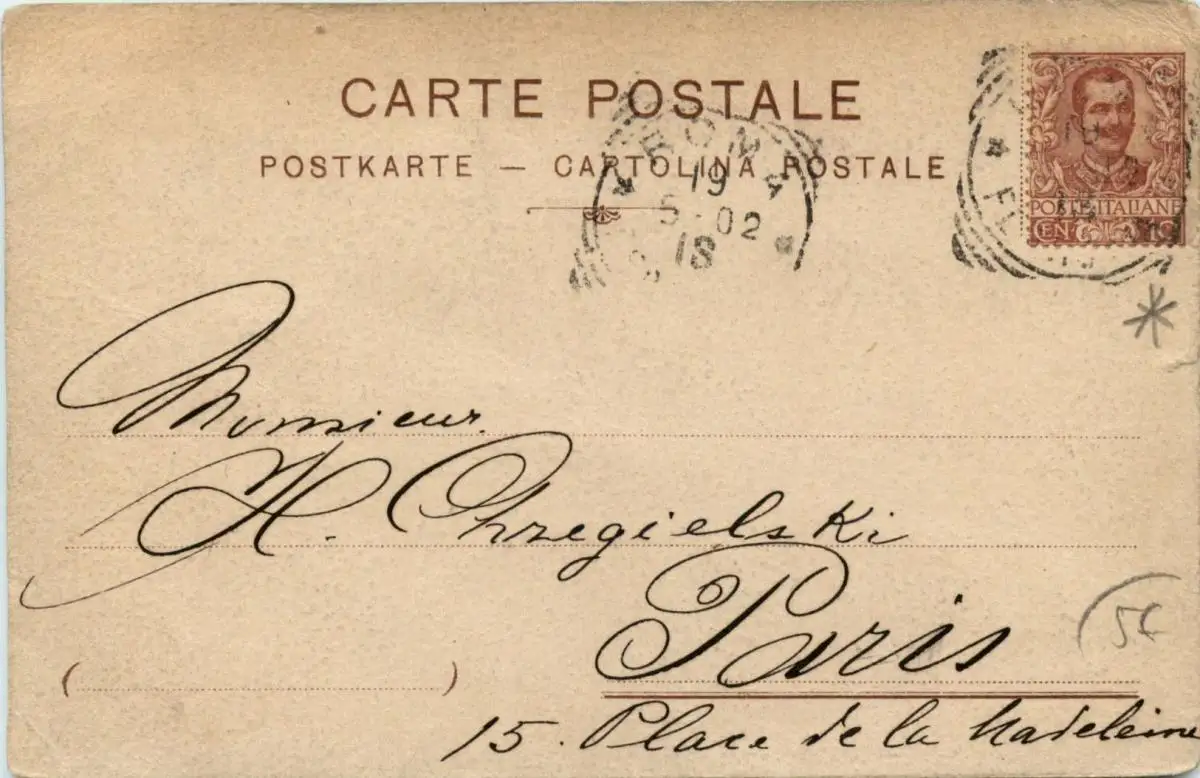 CARTE POSTALE
POSTKARTE — CARTOLINA POSTALE
ROMA
19
5 · 02
18
POSTE ITALIANE
Monsieur
Paris
15. Place de la Madeleine